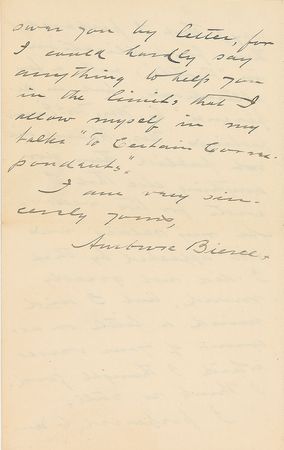 swer you by letter, for
I could hardly say
anything to help you
in the limits that I
allow myself in my
talks "To Certain Corres-
pondents."
I am very sin-
cerely yours,
Ambrose Bierce.